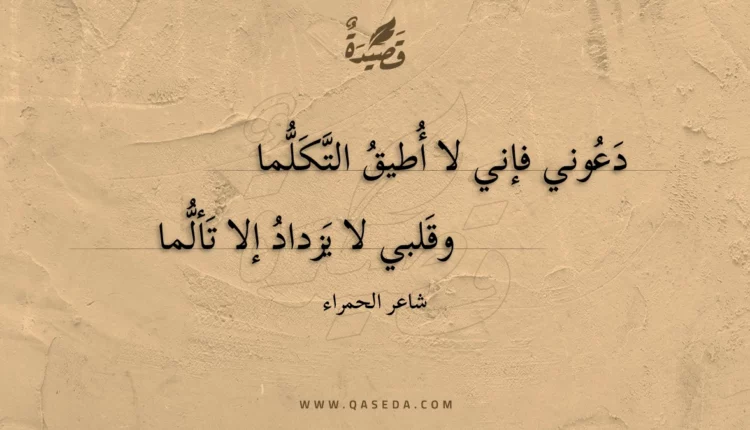 قَصِيْدَةٌ
دَعُوني فإني لا أُطيقُ التَّكَلُّما
وقَلبي لا يَزدادُ إلا تَألُّما
شاعر الحمراء
WWW.QASEDA.COM